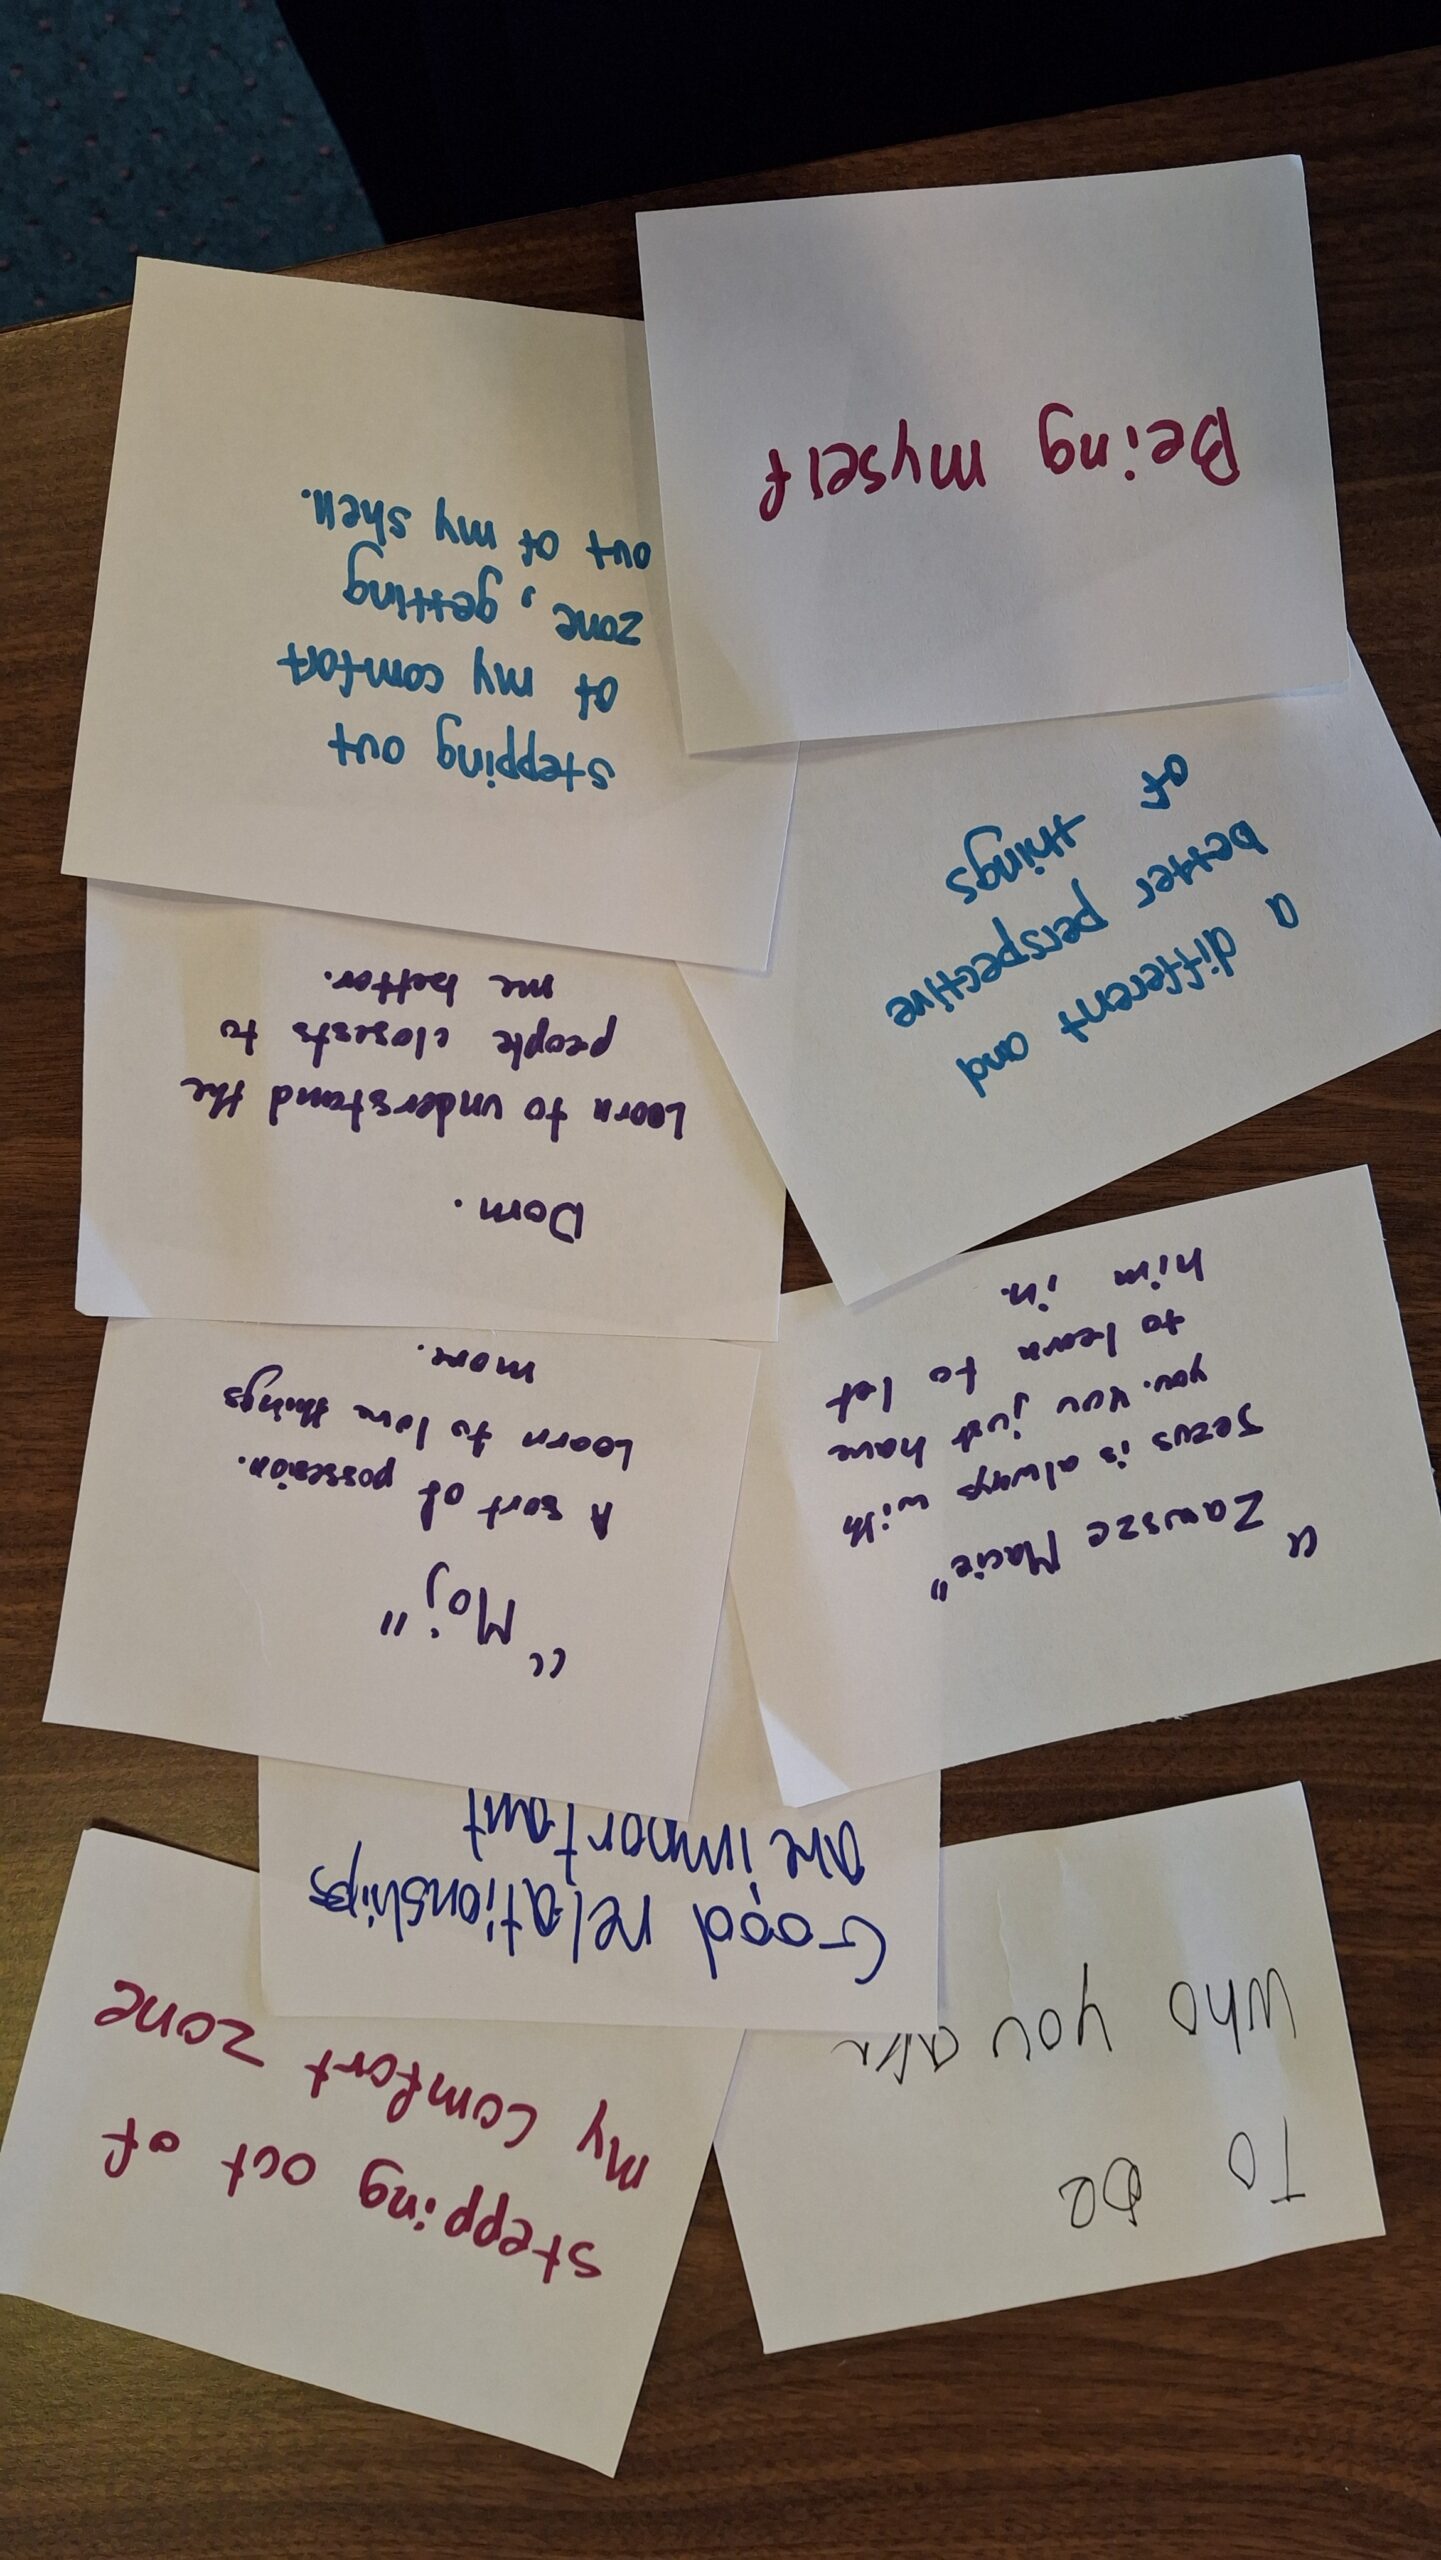 To be
who you are
stepping out of
my comfort zone
Good relationships
are important
"Zawsze Macie"
Jezus is always with
you. You just have
to learn to let
him in.
"Moj"
A sort of possesion.
Learn to love things
more.
Dom.
Learn to understand the
people closests to
me better.
a different and
better perspective
of things
stepping out
of my comfort
zone, getting
out of my shell.
Being myself